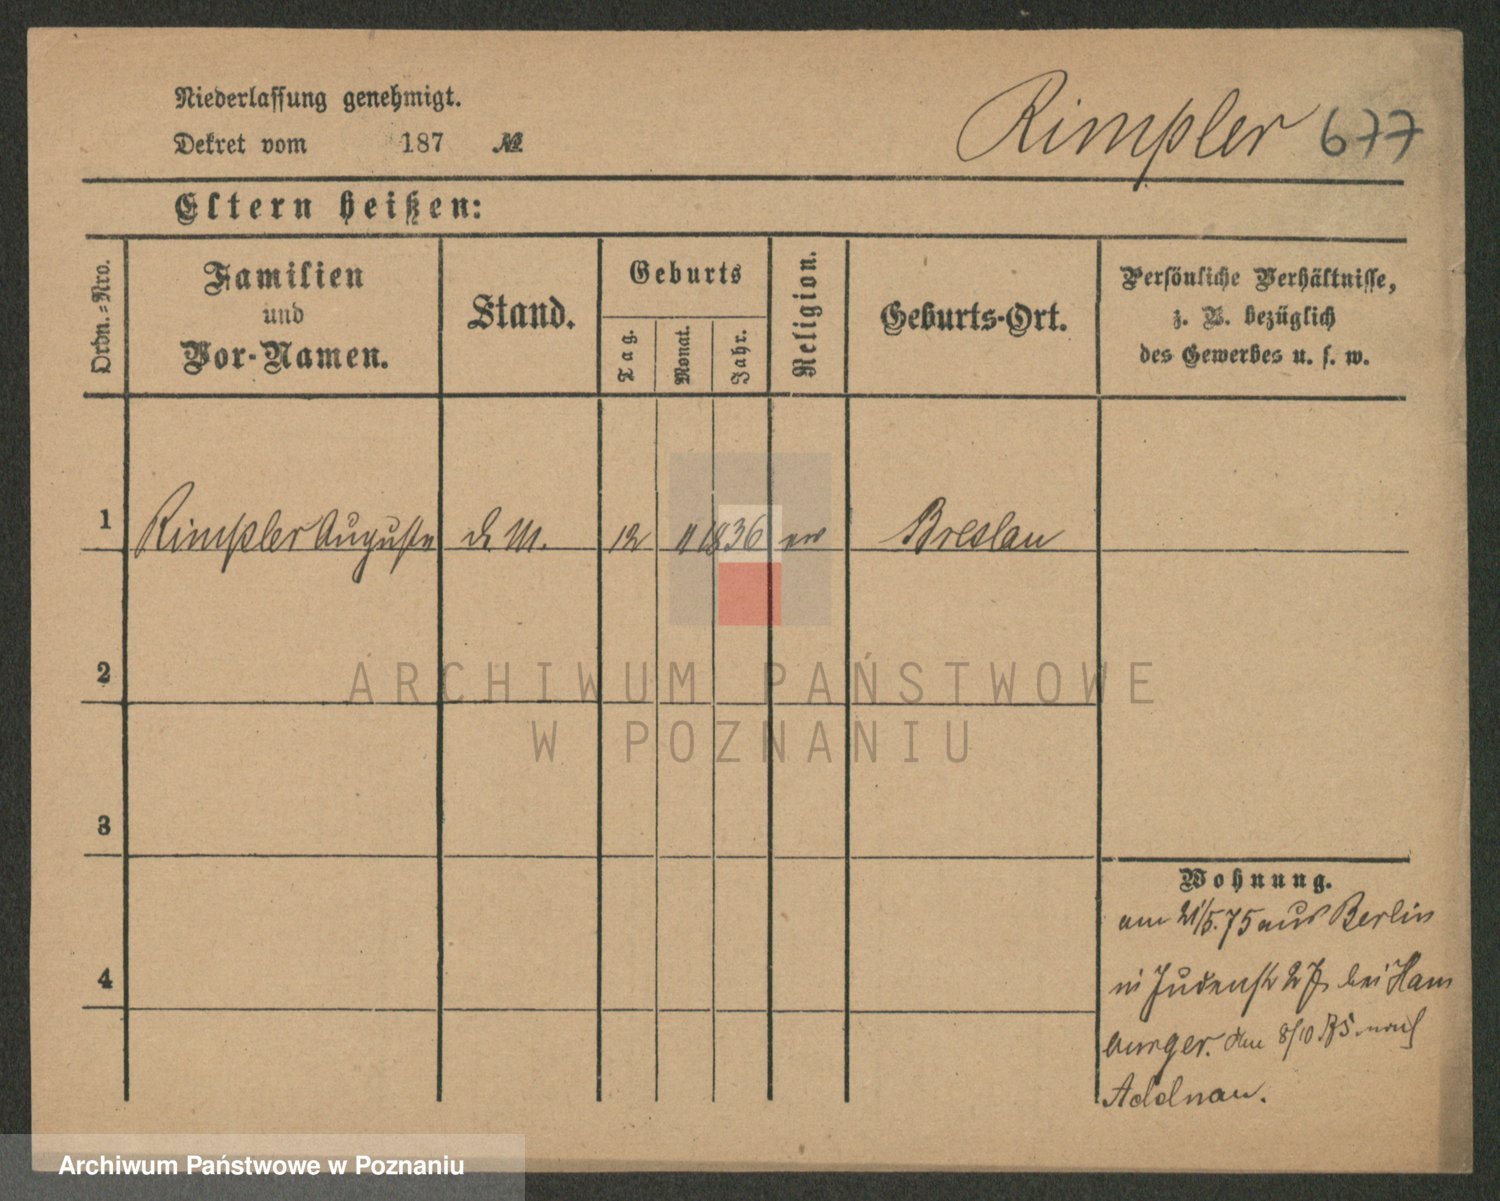 Niederlassung genehmigt.
Dekret vom 187 №
Rimpler 677
Eltern heißen:
Ordn.-Nro.
Familien
und
Vor-Namen.
Stand.
Geburts
Tag.
Monat.
Jahr.
Religion.
Geburts-Ort.
Persönliche Verhältnisse,
z. B. bezüglich
des Gewerbes u. s. w.
1 Rimpler Auguste d. M. 12 11 1836 ev Breslau
2
ARCHIWUM PAŃSTWOWE
W POZNANIU
3
Wohnung.
am 21/5.75 aus Berlin
4
in Judenstr 27 bei Ham
burger. den 8/10 75 nach
Adelnau.
Archiwum Państwowe w Poznaniu